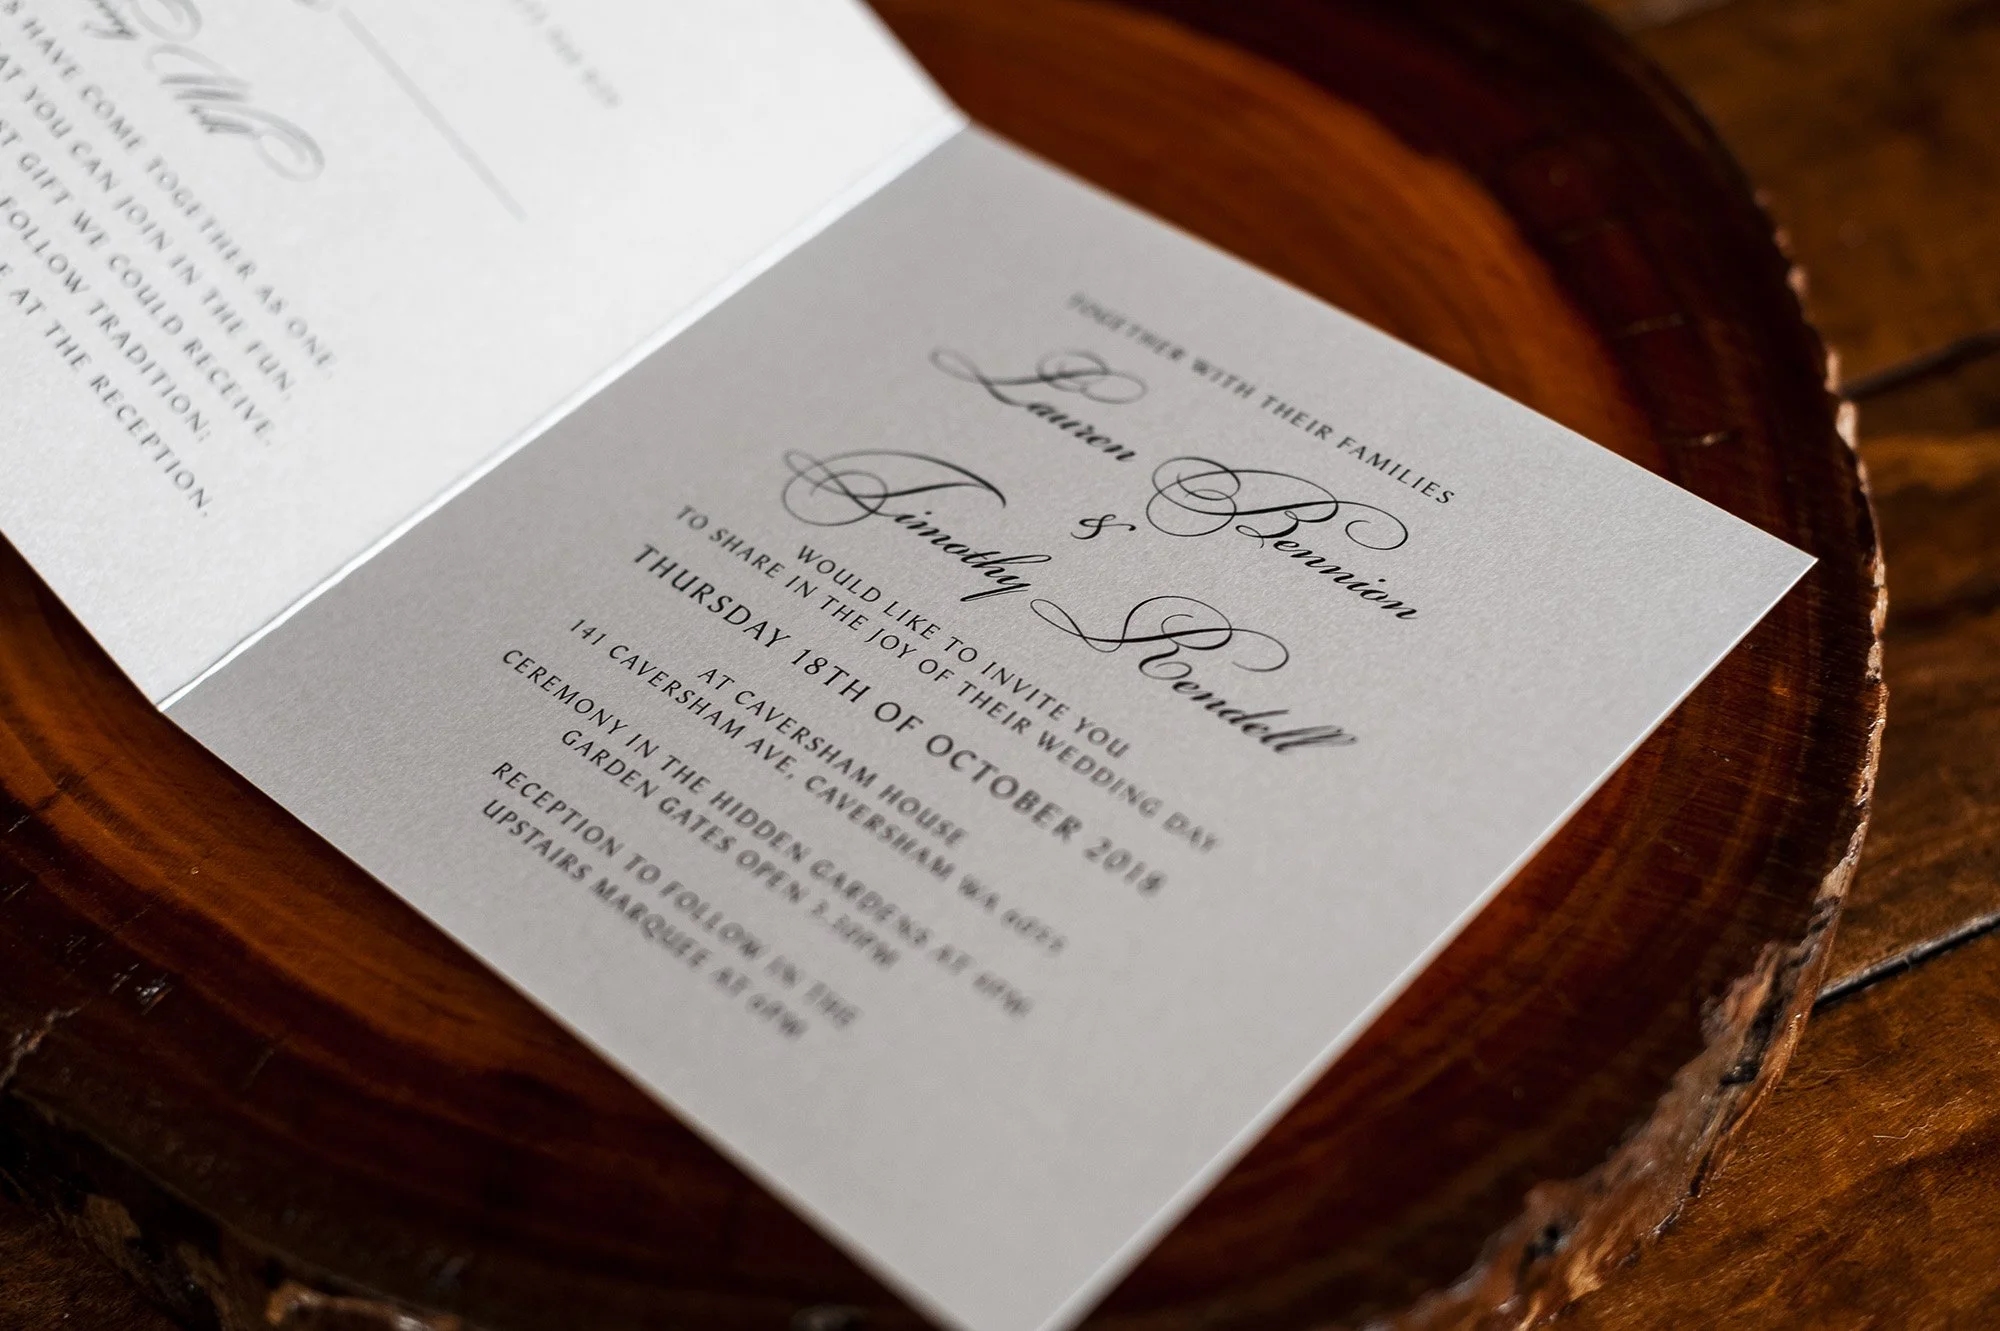 Wish
HAVE COME TOGETHER AS ONE.
AT YOU CAN JOIN IN THE FUN,
GIFT WE COULD RECEIVE.
FOLLOW TRADITION;
AT THE RECEPTION.
TOGETHER WITH THEIR FAMILIES
Lauren Bennion
&
Timothy Rendell
WOULD LIKE TO INVITE YOU
TO SHARE IN THE JOY OF THEIR WEDDING DAY
THURSDAY 18TH OF OCTOBER 2018
AT CAVERSHAM HOUSE
141 CAVERSHAM AVE, CAVERSHAM WA 6055
CEREMONY IN THE HIDDEN GARDENS AT 4PM
GARDEN GATES OPEN 3.30PM
RECEPTION TO FOLLOW IN THE
UPSTAIRS MARQUEE AT 6PM